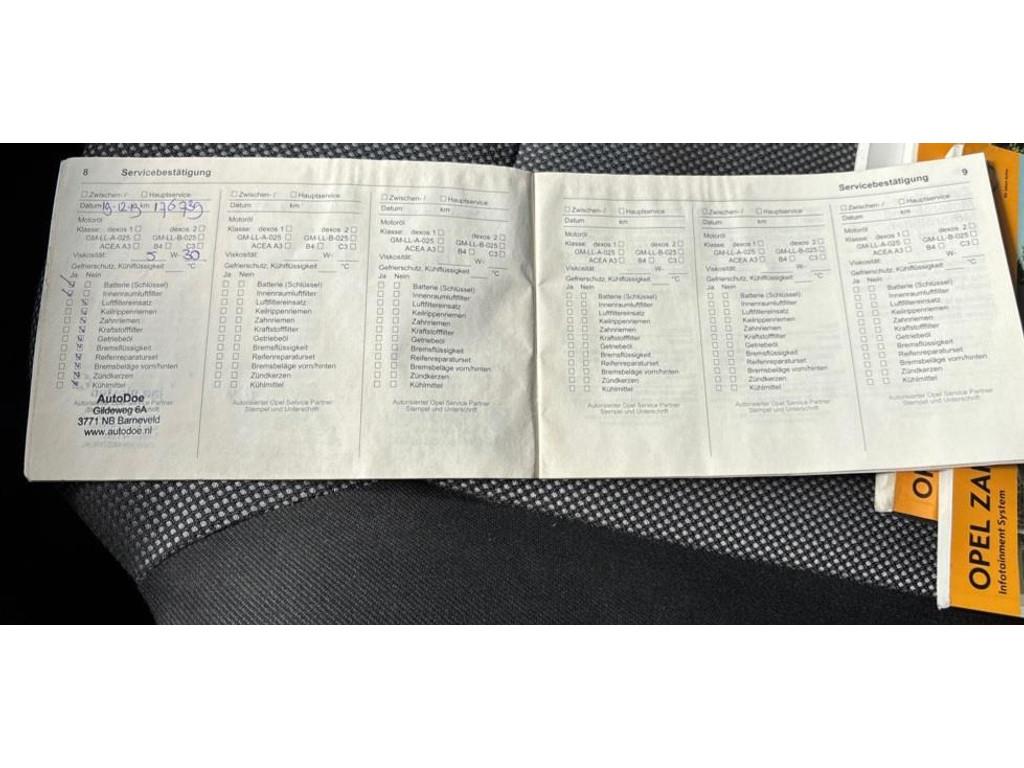 8 Servicebestätigung
☐ Zwischen- / ☐ Hauptservice
Datum 19-12-19 km 176739
Motoröl
Klasse: dexos 1 ☐ dexos 2 ☐
GM-LL-A-025 ☐ GM-LL-B-025 ☐
ACEA A3 ☐ B4 ☐ C3 ☐
Viskosität: 5 W- 30
Gefrierschutz, Kühlflüssigkeit °C
Ja Nein
Batterie (Schlüssel)
Innenraumluftfilter
Luftfiltereinsatz
Keilrippenriemen
Zahnriemen
Kraftstofffilter
Getriebeöl
Bremsflüssigkeit
Reifenreparaturset
Bremsbeläge vorn/hinten
Zündkerzen
Kühlmittel
AutoDoe
Gildeweg 6A
3771 NB Barneveld
www.autodoe.nl
☐ Zwischen- / ☐ Hauptservice
Datum km
Motoröl
Klasse: dexos 1 ☐ dexos 2 ☐
GM-LL-A-025 ☐ GM-LL-B-025 ☐
ACEA A3 ☐ B4 ☐ C3 ☐
Viskosität: W-
Gefrierschutz, Kühlflüssigkeit °C
Ja Nein
Batterie (Schlüssel)
Innenraumluftfilter
Luftfiltereinsatz
Keilrippenriemen
Zahnriemen
Kraftstofffilter
Getriebeöl
Bremsflüssigkeit
Reifenreparaturset
Bremsbeläge vorn/hinten
Zündkerzen
Kühlmittel
Autorisierter Opel Service Partner
Stempel und Unterschrift
☐ Zwischen- / ☐ Hauptservice
Datum km
Motoröl
Klasse: dexos 1 ☐ dexos 2 ☐
GM-LL-A-025 ☐ GM-LL-B-025 ☐
ACEA A3 ☐ B4 ☐ C3 ☐
Viskosität: W-
Gefrierschutz, Kühlflüssigkeit °C
Ja Nein
Batterie (Schlüssel)
Innenraumluftfilter
Luftfiltereinsatz
Keilrippenriemen
Zahnriemen
Kraftstofffilter
Getriebeöl
Bremsflüssigkeit
Reifenreparaturset
Bremsbeläge vorn/hinten
Zündkerzen
Kühlmittel
Autorisierter Opel Service Partner
Stempel und Unterschrift
Servicebestätigung 9
☐ Zwischen- / ☐ Hauptservice
Datum km
Motoröl
Klasse: dexos 1 ☐ dexos 2 ☐
GM-LL-A-025 ☐ GM-LL-B-025 ☐
ACEA A3 ☐ B4 ☐ C3 ☐
Viskosität: W-
Gefrierschutz, Kühlflüssigkeit °C
Ja Nein
Batterie (Schlüssel)
Innenraumluftfilter
Luftfiltereinsatz
Keilrippenriemen
Zahnriemen
Kraftstofffilter
Getriebeöl
Bremsflüssigkeit
Reifenreparaturset
Bremsbeläge vorn/hinten
Zündkerzen
Kühlmittel
Autorisierter Opel Service Partner
Stempel und Unterschrift
☐ Zwischen- / ☐ Hauptservice
Datum km
Motoröl
Klasse: dexos 1 ☐ dexos 2 ☐
GM-LL-A-025 ☐ GM-LL-B-025 ☐
ACEA A3 ☐ B4 ☐ C3 ☐
Viskosität: W-
Gefrierschutz, Kühlflüssigkeit °C
Ja Nein
Batterie (Schlüssel)
Innenraumluftfilter
Luftfiltereinsatz
Keilrippenriemen
Zahnriemen
Kraftstofffilter
Getriebeöl
Bremsflüssigkeit
Reifenreparaturset
Bremsbeläge vorn/hinten
Zündkerzen
Kühlmittel
Autorisierter Opel Service Partner
Stempel und Unterschrift
☐ Zwischen- / ☐ Hauptservice
Datum km
Motoröl
Klasse: dexos 1 ☐ dexos 2 ☐
GM-LL-A-025 ☐ GM-LL-B-025 ☐
ACEA A3 ☐ B4 ☐ C3 ☐
Viskosität: W-
Gefrierschutz, Kühlflüssigkeit °C
Ja Nein
Batterie (Schlüssel)
Innenraumluftfilter
Luftfiltereinsatz
Keilrippenriemen
Zahnriemen
Kraftstofffilter
Getriebeöl
Bremsflüssigkeit
Reifenreparaturset
Bremsbeläge vorn/hinten
Zündkerzen
Kühlmittel
Autorisierter Opel Service Partner
Stempel und Unterschrift
OPEL ZA
Infotainment System